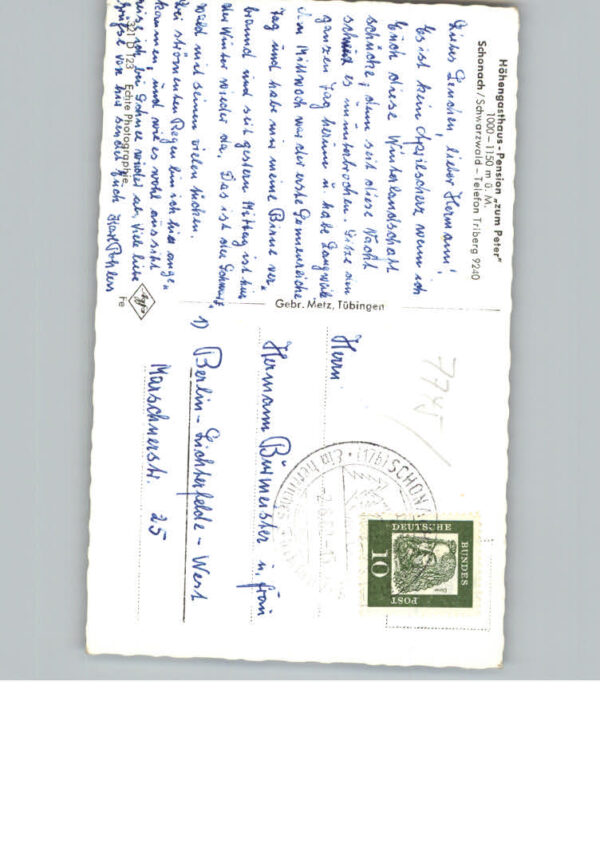 Höhengasthaus - Pension „zum Peter"
1000 – 1150 m ü. M.
Schonach / Schwarzwald – Telefon Triberg 9240
Liebes Lenchen, lieber Hermann!
Es ist kein Aprilscherz wenn ich
Euch diese Winterlandschaft
schicke; denn seit diese Nacht
schneit es ununterbrochen. Sitze den
ganzen Tag herum u. habe Langweile
Am Mittwoch war der erste Sonnenreiche
Tag und habe mir meine Birne ver-
brannt und seit gestern Mittag ist hier
der Winter wieder da. Das ist der Schwarz-
wald mit seinen vielen Tücken.
Bei strömenden Regen bin ich hier ange-
kommen, und wie es wohl aussieht
reise ich bei Schnee wieder ab. Viele liebe
Grüße von hier sendet Euch
321 D 123 Echte Photographie
Agfa
Fe
Gebr. Metz, Tübingen
7745
Herrn
Hermann Burmeister u. Frau
1) Berlin-Lichterfelde-West
Marschnerstr. 25
SCHONA
DEUTSCHE
BUNDES
POST
10